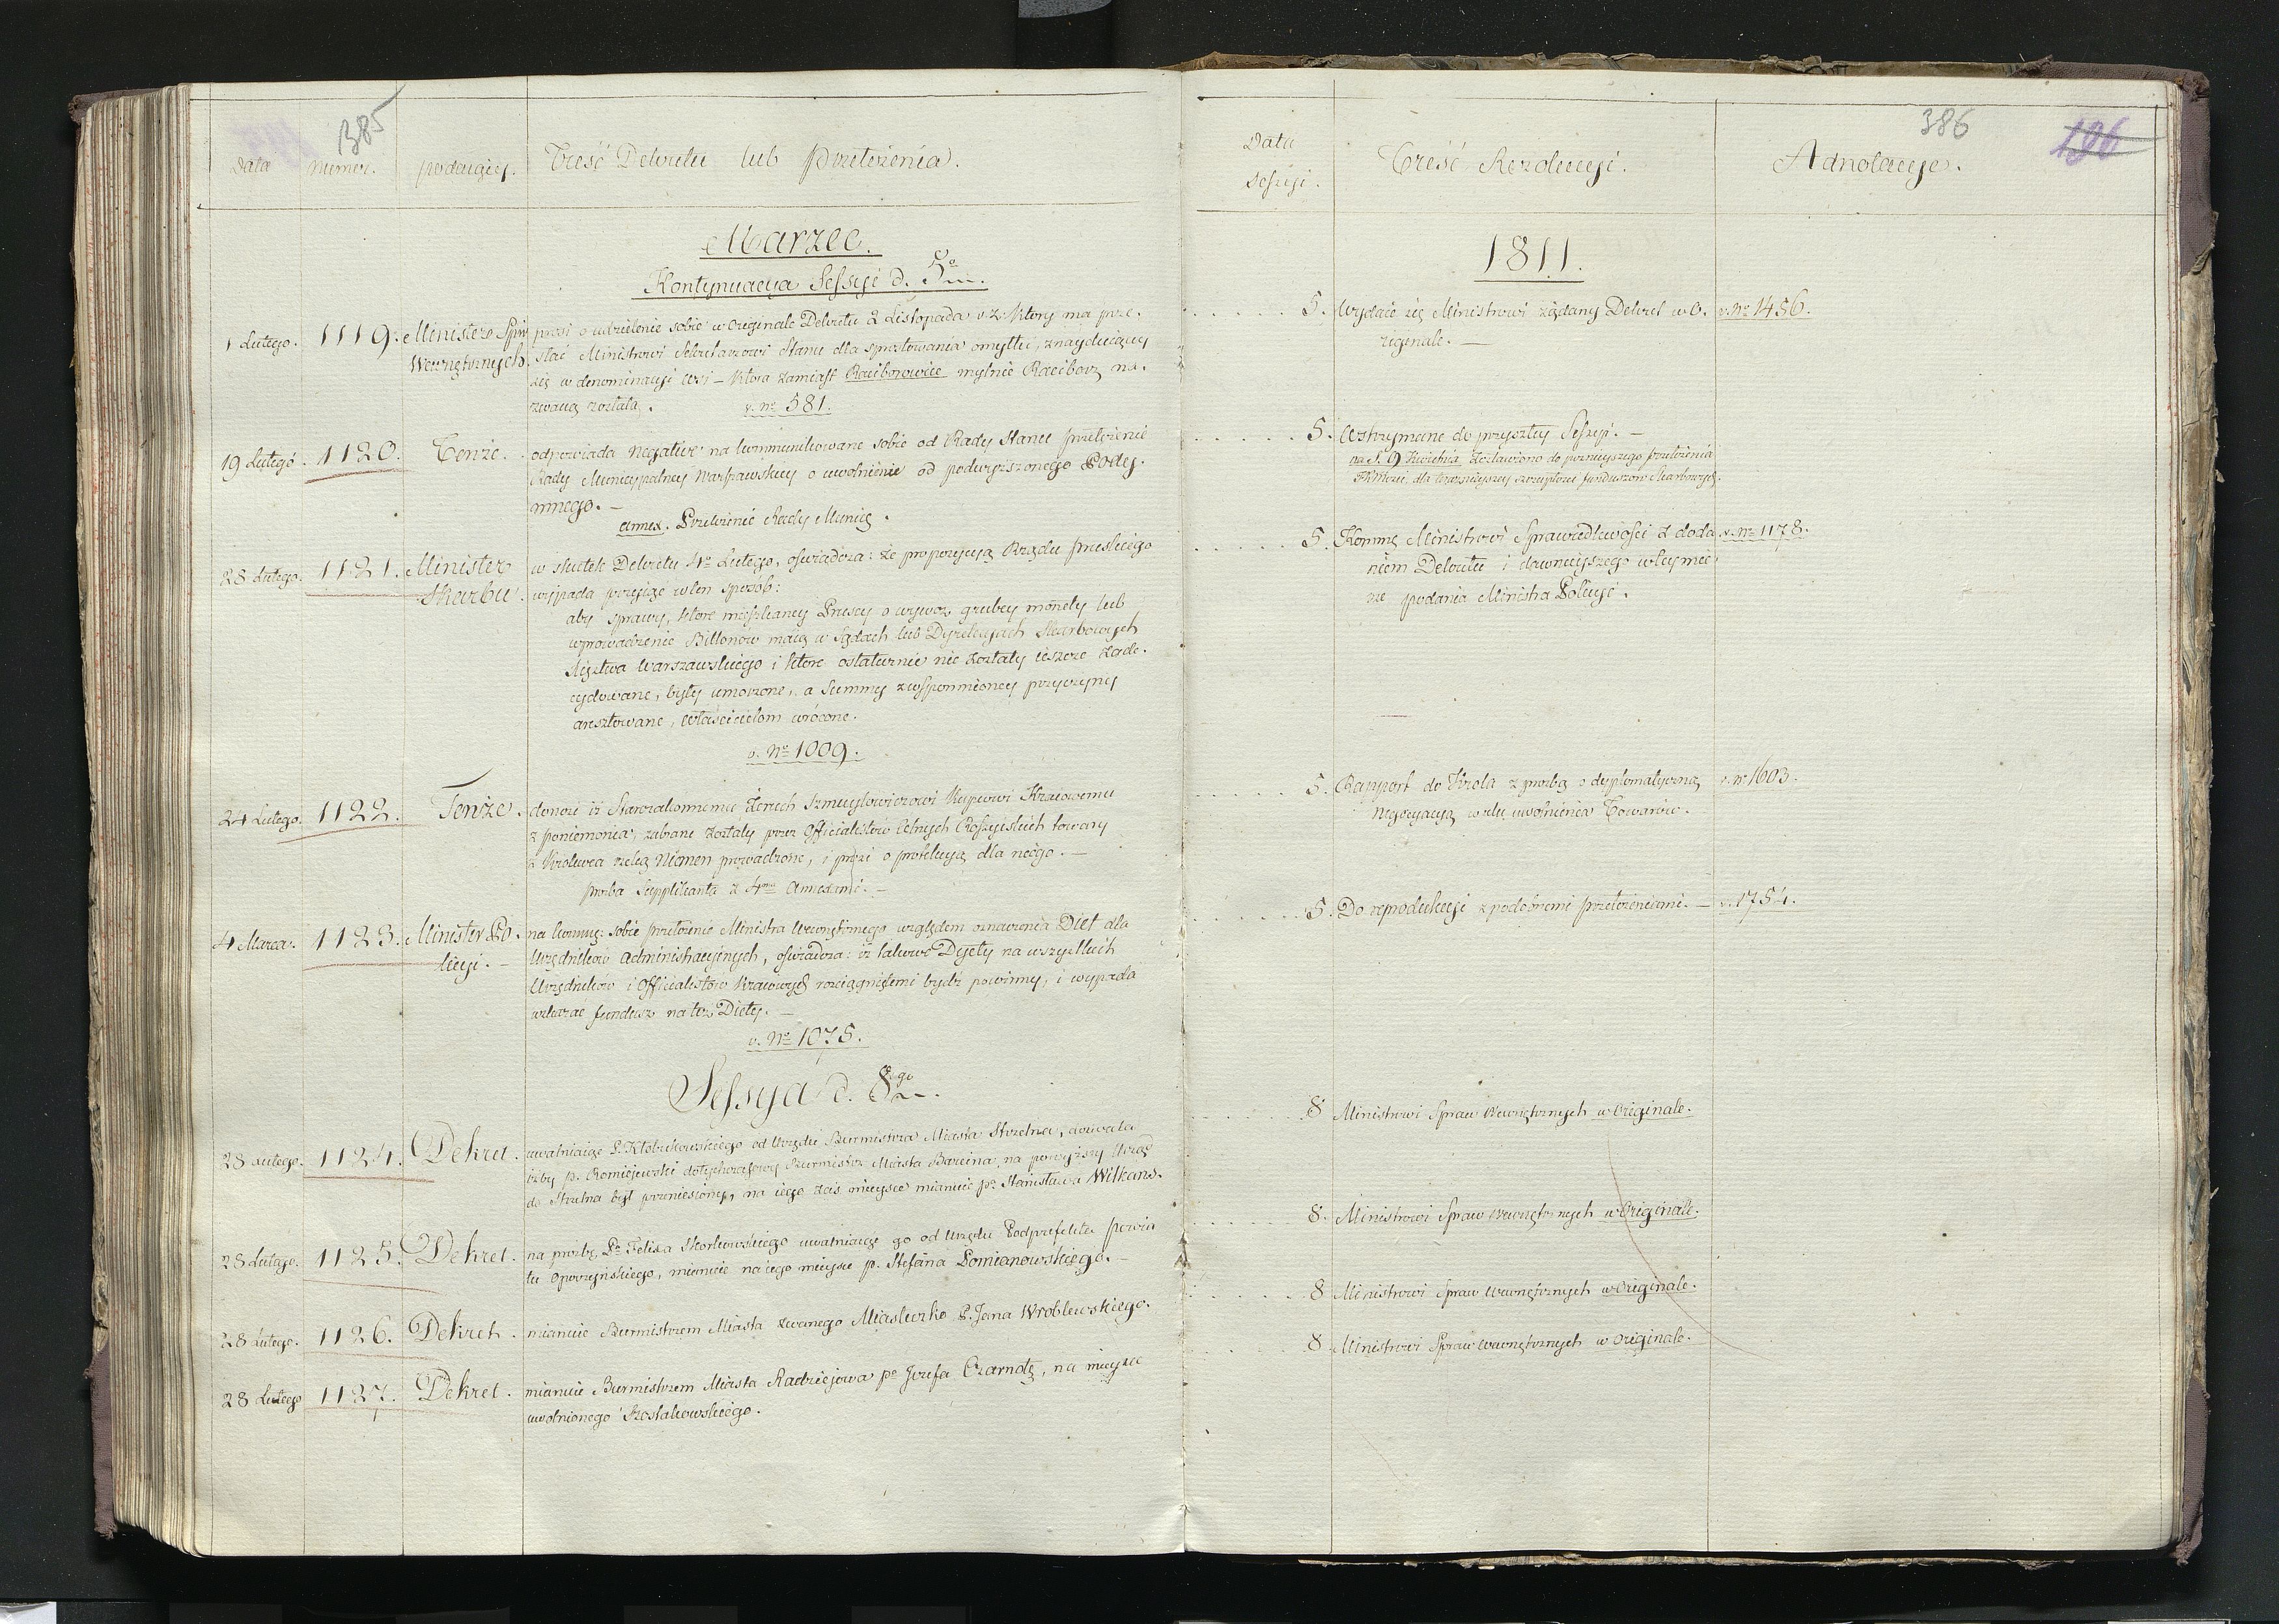 385
Data
Numer.
podaiący.
Treść Dekretu lub przełożenia.
Marzec.
Kontynuacya Sessyi d. 5º
1 Lutego. 1119. Minister Spr: prosi o udzielenie sobie w Originale Dekretu 2 Listopada v: z: który ma prze-
Wewnętrznych. słać Ministrowi Sekretarzowi Stanu dla sprostowania omyłki, znayduiącey
się w denominacyi wsi – która zamiast Raciborowice mylnie Raciborz na-
zwaną została.
v. nº 581.
19 Lutego. 1120. Tenże. odpowiada negative na kommunikowane sobie od Rady Stanu przełożenie
Rady Municypalney Warszawskiey o uwolnienie od podwyższonego Pody-
mnego. –
annex. Przełożenie Rady Munic.
28 Lutego. 1121. Minister w skutek Dekretu 4º Lutego, oświadcza: że propozycyą Rządu pruskiego
Skarbu. wypada przyiąć w ten sposób:
aby sprawy, które mieszkańcy Pruscy o wywóz grubey monety lub
wprowadzenie Billonów maią w Sądach lub Dyrekcyach Skarbowych
Xięstwa Warszawskiego i które ostatecznie nie zostały ieszcze zade-
cydowane, były umorzone, a Summy z wspomnioney przyczyny
aresztowane, właścicielom wrócone.
v. Nº 1009.
24 Lutego. 1122. Tenże. donosi iż Starozakonnemu Zerech Szmuylowiczowi Kupcowi Kraiowemu
z poniemonia, zabrane zostały przez Officialistów Celnych Rossyiskich towary
z Krolewca rzeką Niemen prowadzone, i prosi o protekcyą dla niego. –
prosba Supplikanta z 4ma annexami. –
4 Marca. 1123. Minister Po- na kommu: sobie przełożenie Ministra Wewnętrznego względem oznaczenia Diet dla
licyi. – Urzędników administracyinych, oświadcza: iż takowe Dyety na wszystkich
Urzędników i Officialistów Kraiowych rozciągniętemi bydź powinny, i wypada
wskazać fundusz na też Diety. –
v. Nº 1075.
Sessya d. 8go
28 Lutego. 1124. Dekret. uwalniaiąc P. Kłobukowskiego od Urzędu Burmistrza Miasta Strzelna, dozwala
iżby p. Romiejewski dotychczasowy Burmistrz Miasta Barcina, na powyższy Urząd
do Strzelna był przeniesiony, na iego zaś mieysce mianuie pº Stanisława Wilkans.
28 Lutego. 1125. Dekret. na prośbę Pº Felixa Skorkowskiego uwalniaiąc go od Urzędu Podprefekta powia-
tu Opoczyńskiego, mianuie na iego mieysce p. Stefana Pomianowskiego. –
28 Lutego. 1126. Dekret. mianuie Burmistrzem Miasta zwanego Miasteczko P. Jana Wroblewskiego.
28 Lutego 1127. Dekret. mianuie Burmistrzem Miasta Radziejowa pº Jozefa Czarnotę, na mieysce
uwolnionego Szostakowskiego.
386
196
Data
Sessyi.
Treść Rezolucyi.
Adnotacye.
1811.
5. Wydać się Ministrowi żądany Dekret w O- v. Nº 1456.
riginale. –
5. Wstrzymane do przyszłey Sessyi. –
na S. 9 Kwietnia zostawiono do poznieyszego przełożenia
5. Kommu: Ministrowi Sprawiedliwości z doda- v. Nº 1178.
niem Dekretu i dawnieyszego w tey mie-
rze podania Ministra Policyi.
5. Rapport do Krola z prosbą o dyplomatyczną v. Nº 1603.
negocyacyą w celu uwolnienia Towarów.
5. Do reprodukcyi z podobnemi przełożeniami. – v. 1754.
8 Ministrowi Spraw Wewnętrznych w Originale.
8. Ministrowi Spraw Wewnętrznych w Originale.
8 Ministrowi Spraw Wewnętrznych w Originale.
8. Ministrowi Spraw Wewnętrznych w Originale.